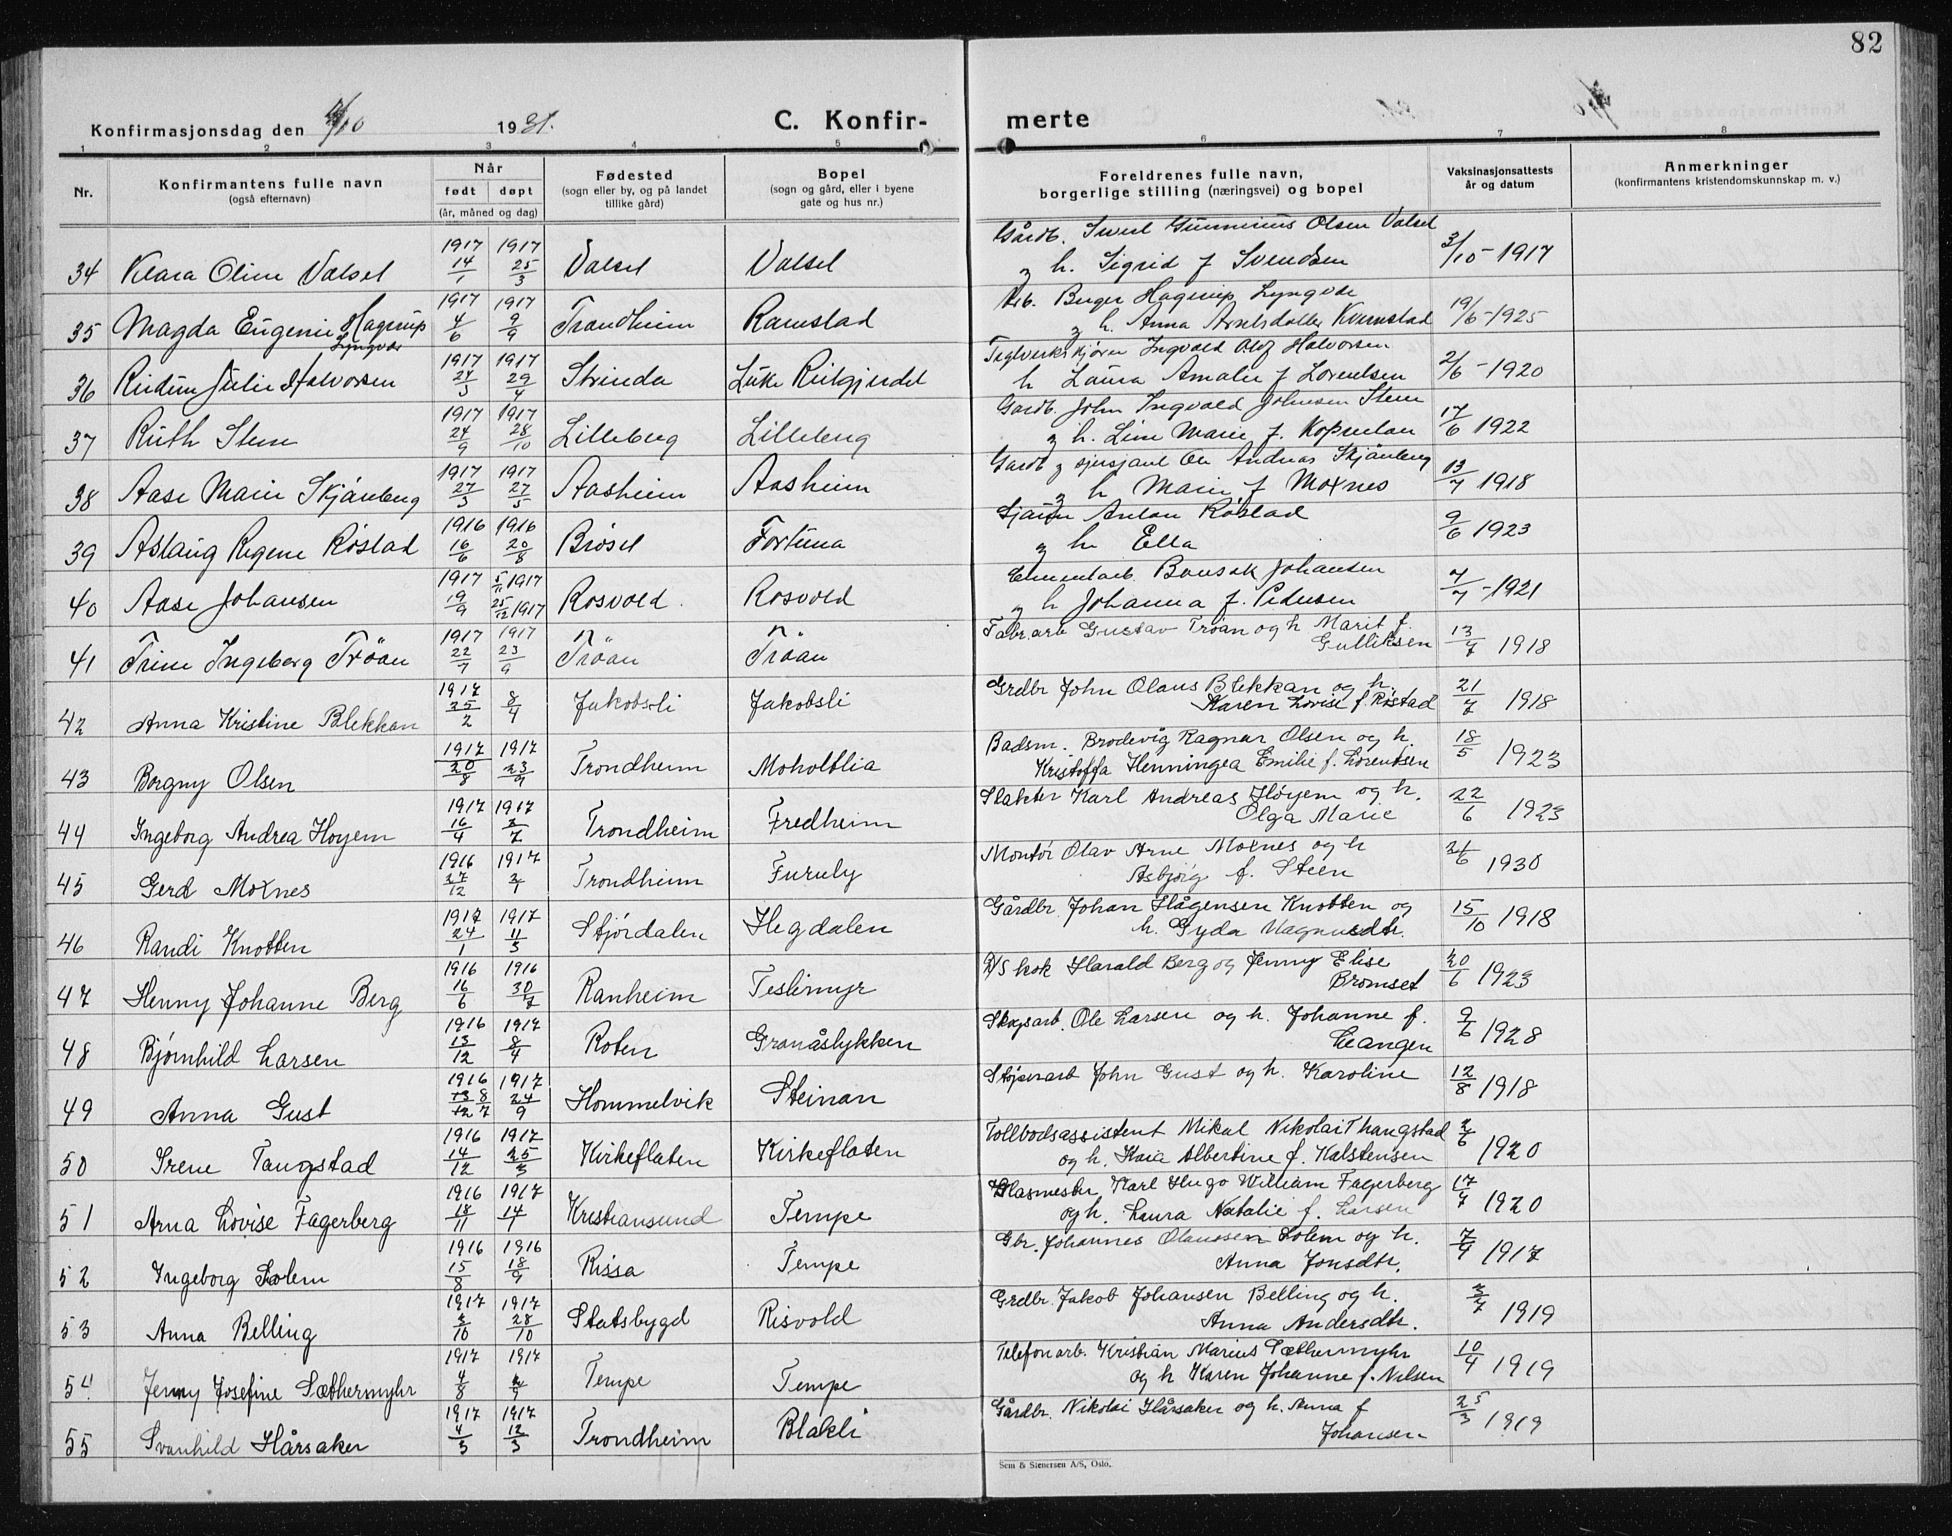 82
Konfirmasjonsdag den 4/10 1931.
C. Konfir-merte
1 2 3 4 5 6 7 8
Nr.
Konfirmantens fulle navn
(også efternavn)
Når
født døpt
(år, måned og dag)
Fødested
(sogn eller by, og på landet
tillike gård)
Bopel
(sogn og gård, eller i byene
gate og hus nr.)
Foreldrenes fulle navn,
borgerlige stilling (næringsvei) og bopel
Vaksinasjonsattests
år og datum
Anmerkninger
(konfirmantens kristendomskunnskap m. v.)
34 Klara Oline Valsel 1917 14/1 1917 25/3 Valsel Valsel Gårdb. Gunnerius Olsen Valsel
og h. Sigrid f Svendsen 3/10-1917
35 Magda Eugenie Hagerup
Lyngvær 1917 4/6 1917 9/9 Trondheim Ramstad Arb. Birger Hagerup Lyngvær
og h. Anna Kvernstad 19/6-1925
36 Reidun Julie Halvorsen 1917 24/3 1917 29/4 Strinda Teglverkskjører Ingvald Olof Halvorsen
h Laura Amalie f Lorentsen 2/6-1920
37 Ruth Steen 1917 24/9 1917 28/10 Lilleberg Lilleberg Gardb. John Ingvald Johnsen Steen
og h. Line Marie f. 17/6 1922
38 Aase Marie Skjånberg 1917 27/3 1917 27/5 Aasheim Aasheim Gardb og Ole Andreas Skjånberg
og h Marie f Moxnes 13/7 1918
39 Aslaug Regene Røstad 1916 16/6 1916 20/8 Brøset Fortuna Anton Røstad
og h. Ella 9/6 1923
40 Aase Johansen 1917 19/9 5/11 1917 25/12 1917 Rosvold. Rosvold Johansen
og h Johanna f. Pedersen 7/7-1921
41 Trine Ingeborg Trøan 1917 22/7 1917 23/9 Trøan Trøan Fabr.arb Gustav Trøan og h Marit f.
Gulliksen 13/7 1918
42 Anna Kristine Blekkan 1917 25/2 8/4 Jakobsli Jakobsli Grdbr John Olaus Blekkan og h.
Karen Lovise f. Røstad 21/7 1918
43 Borgny Olsen 1917 20/8 1917 23/9 Trondheim Moholtlia Badsm. Brodevig Ragnar Olsen og h
Kristoffa Henningea Emilie f. Lorentsen 18/5 1923
44 Ingeborg Andrea Høyem 1917 16/4 1917 Trondheim Fredheim Slakter Karl Andreas Høyem og h.
Olga Marie 22/6 1923
45 Gerd Moxnes 1916 27/12 1917 Trondheim Furuly Montør Olav Arne Moxnes og h
Asbjørg f. Steen 21/6 1930
46 Randi Knotten 1917 24/1 1917 11/3 Stjørdalen Hegdalen Gårdbr. Johan Hågensen Knotten og
h. Gyda Magnusdtr. 15/10 1918
47 Henny Johanne Berg 1916 16/6 1916 30/7 Ranheim Teslimyr D/S kok Harald Berg og Jenny Elise
Bromset 20/6 1923
48 Bjørnhild Larsen 1916 13/12 1917 8/4 Roten Granåslykken Skogsarb. Ole Larsen og h. Johanne f.
Leangen 9/6 1928
49 Anna Gust 1916 13/12 8/7 1917 24/9 Hommelvik Steinan Støperarb John Gust og h. Karoline 12/8 1918
50 Irene Tangstad 1916 14/12 1917 25/3 Kirkeflaten Kirkeflaten Tollbodsassistent Mikal Nikolai Thangstad
og h. Kaia Albertine f. Kalstensen 2/6 1920
51 Arna Lovise Fagerberg 1916 18/11 1917 14/1 Kristiansund Tempe Glasmester Karl Hugo William Fagerberg
og h. Laura Natalie f. Larsen 17/7 1920
52 Ingeborg Solem 1916 15/8 1916 18/9 Rissa Tempe Gbr. Johannes Olaussen Solem og h.
Anna Jonsdtr. 7/9 1917
53 Anna Belling 1917 2/10 1917 28/10 Statsbygd Risvold Grdbr. Jakob Johansen Belling og h.
Anna Andersdtr. 3/7 1919
54 Jenny Josefine Sæthermyhr 1917 4/8 1917 Tempe Tempe Telefonarb. Kristian Marius Sæthermyhr
og h Karen Johanne f. Nilsen 10/9 1919
55 Svanhild Hårsaker 1917 4/3 1917 12/3 Trondheim Blakli Gårdbr. Nikolai Hårsaker og h. Anna f
Johansen 25/3 1919
Sem & Stenersen A/S, Oslo.